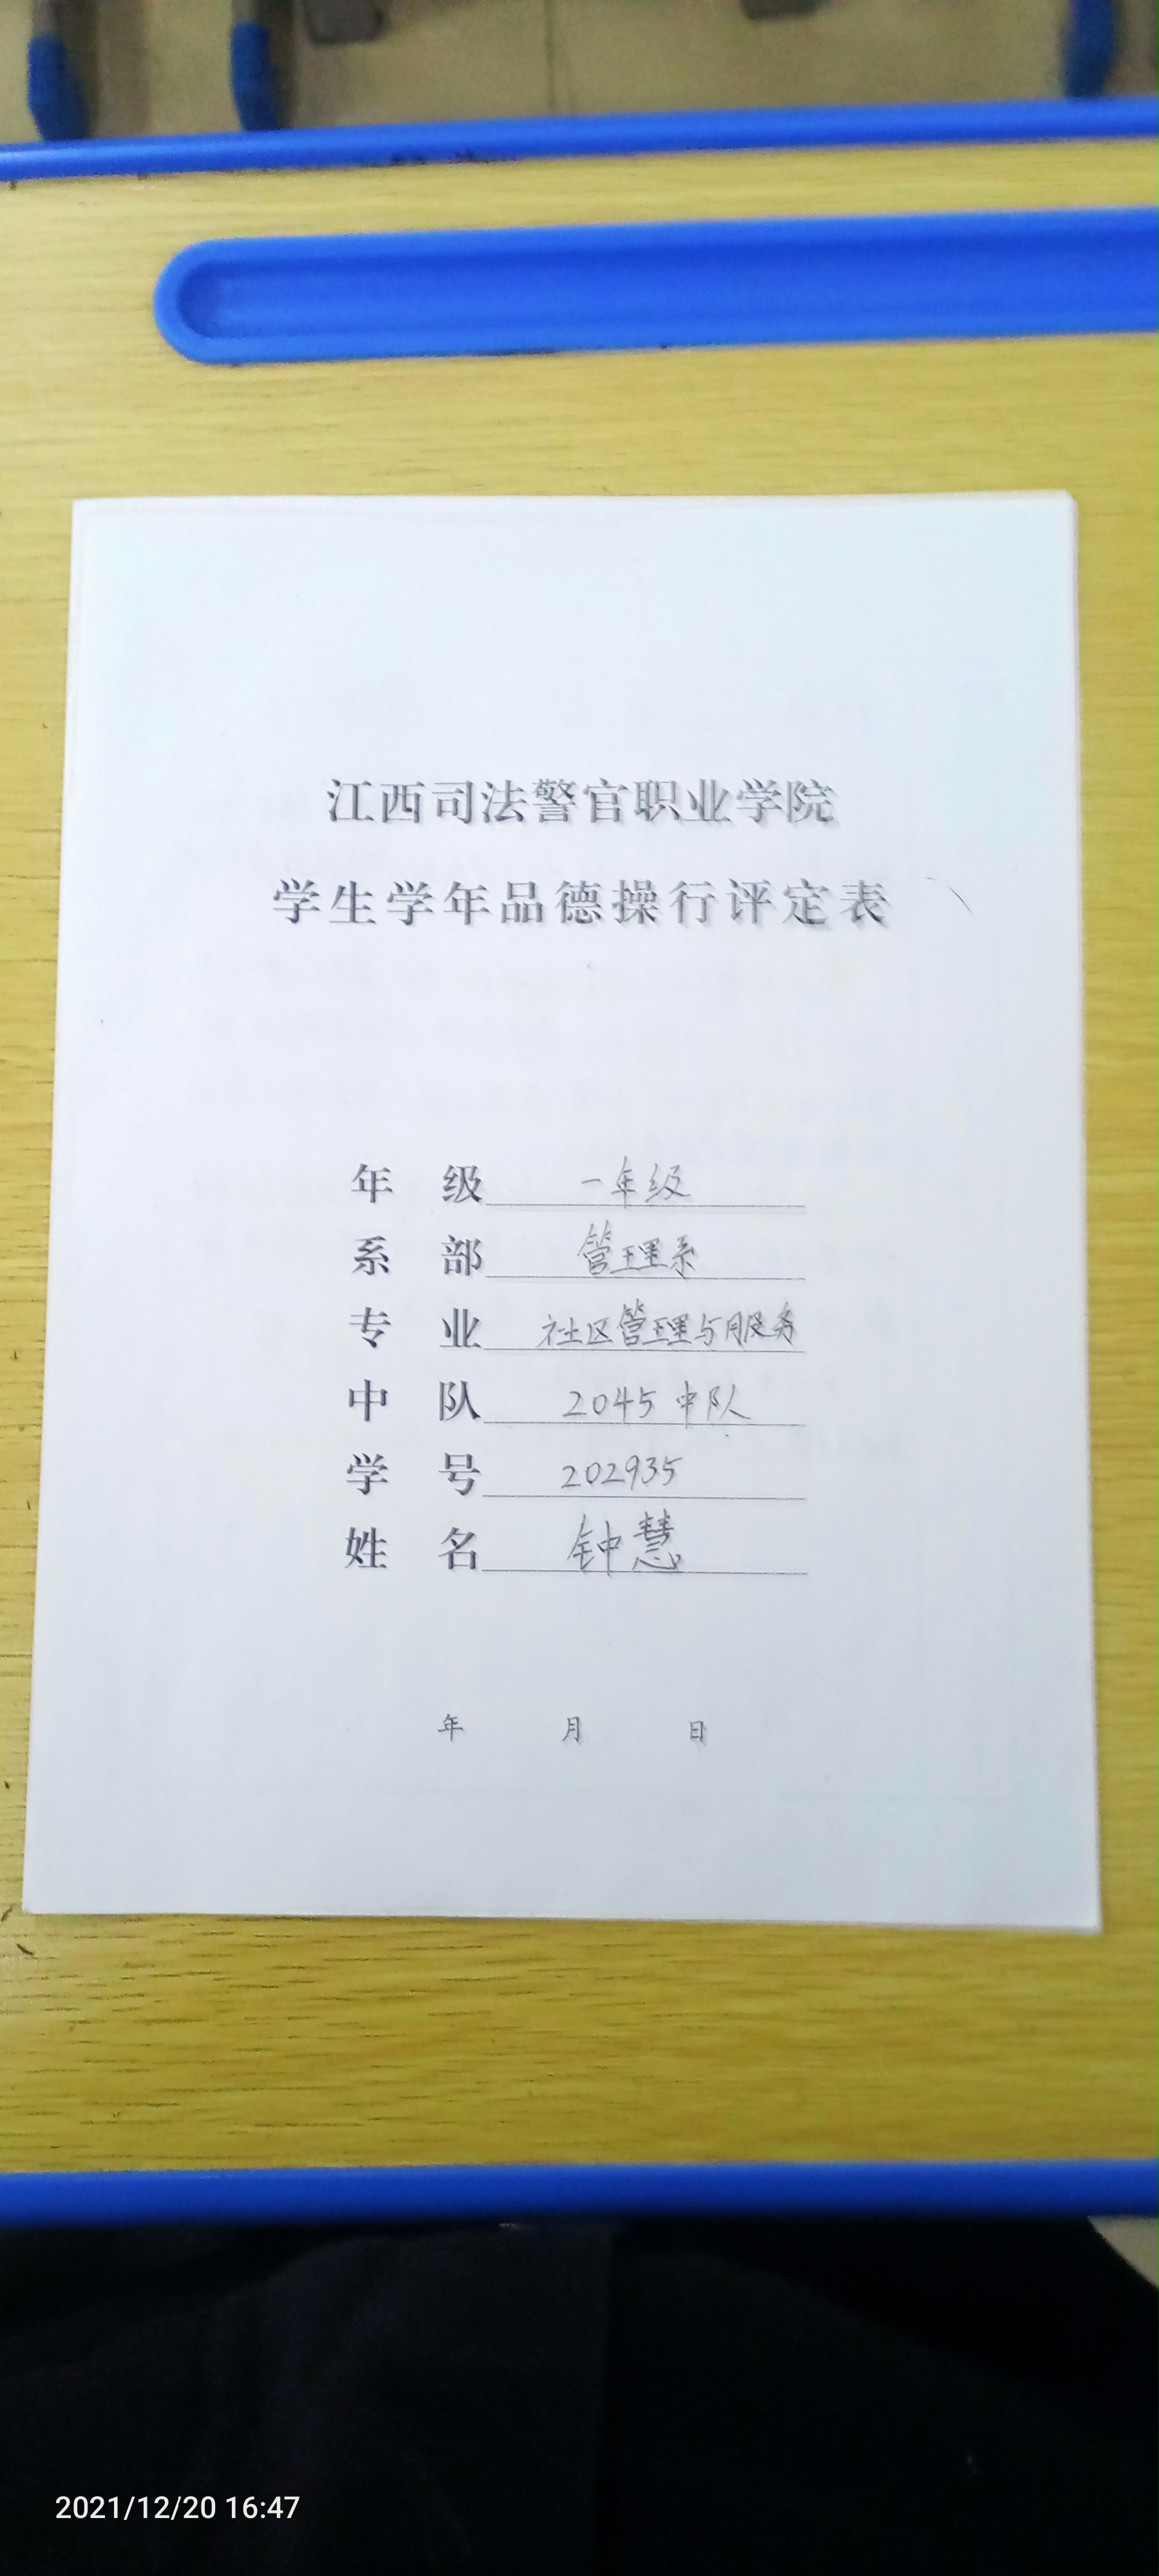 江西司法警官职业学院
学生学年品德操行评定表
年 级 一年级
系 部 管理系
专 业 社区管理与服务
中 队 2045中队
学 号 202935
姓 名 钟慧
年 月 日
2021/12/20 16:47